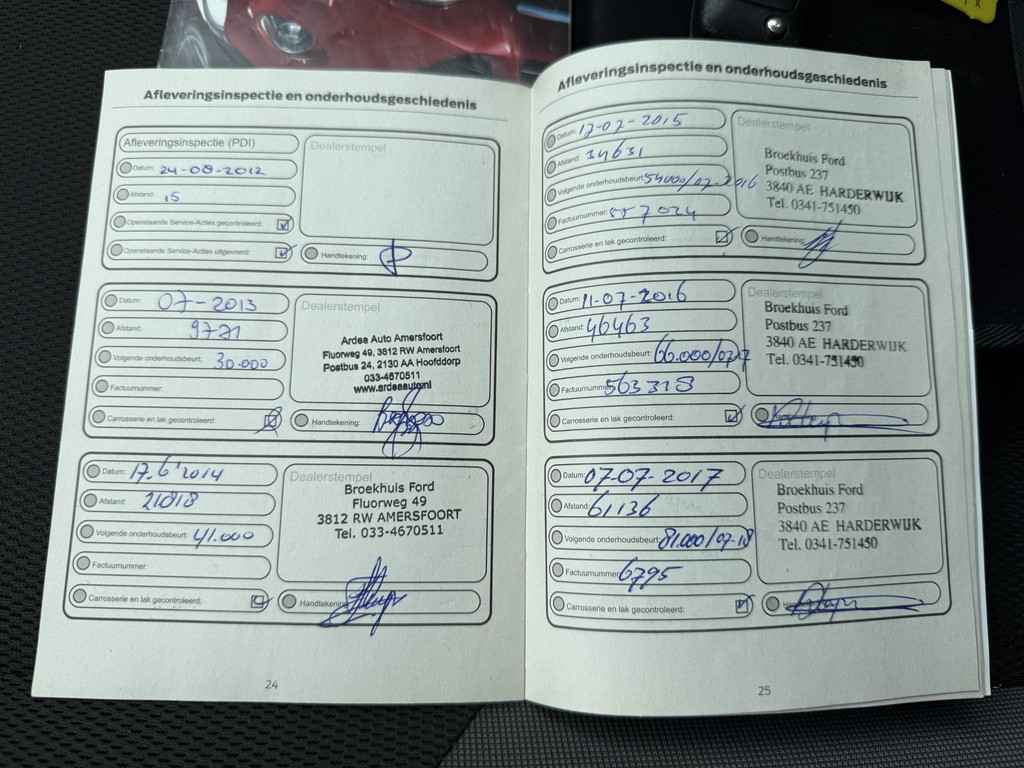 Afleveringsinspectie en onderhoudsgeschiedenis
Afleveringsinspectie (PDI)
Datum: 24-08-2012
Afstand: 15
Openstaande Service-Acties gecontroleerd:
Openstaande Service-Acties uitgevoerd:
Dealerstempel
Handtekening:
Datum: 07-2013
Afstand: 9721
Volgende onderhoudsbeurt: 30.000
Factuurnummer:
Carrosserie en lak gecontroleerd:
Dealerstempel
Ardea Auto Amersfoort
Fluorweg 49, 3812 RW Amersfoort
Postbus 24, 2130 AA Hoofddorp
033-4670511
www.ardeaauto.nl
Handtekening:
Datum: 17.6'2014
Afstand: 21818
Volgende onderhoudsbeurt: 41.000
Factuurnummer:
Carrosserie en lak gecontroleerd:
Dealerstempel
Broekhuis Ford
Fluorweg 49
3812 RW AMERSFOORT
Tel. 033-4670511
Handtekening:
24
Afleveringsinspectie en onderhoudsgeschiedenis
Datum: 17-07-2015
Afstand: 34631
Volgende onderhoudsbeurt: 54000/07-2016
Factuurnummer: 557024
Carrosserie en lak gecontroleerd:
Dealerstempel
Broekhuis Ford
Postbus 237
3840 AE HARDERWIJK
Tel. 0341-751450
Handtekening:
Datum: 11-07-2016
Afstand: 46463
Volgende onderhoudsbeurt: 66.000/07-17
Factuurnummer: 563318
Carrosserie en lak gecontroleerd:
Dealerstempel
Broekhuis Ford
Postbus 237
3840 AE HARDERWIJK
Tel. 0341-751450
Datum: 07-07-2017
Afstand: 61136
Volgende onderhoudsbeurt: 81.000/07-18
Factuurnummer: 6795
Carrosserie en lak gecontroleerd:
Dealerstempel
Broekhuis Ford
Postbus 237
3840 AE HARDERWIJK
Tel. 0341-751450
25